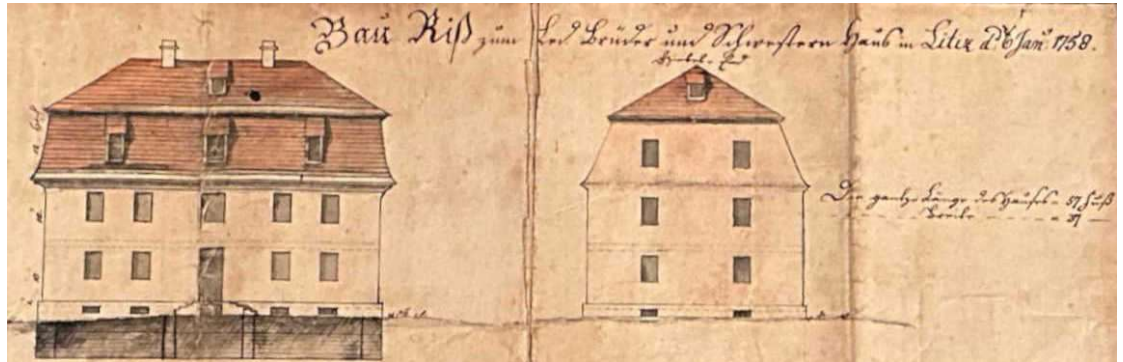 Bau Riß zum Led. Brüder und Schwestern Haus in Litiz d. 6 Jan. 1758.
Giebel-End
Die gantze Länge des Hauses = 57 Fuß
Breite - - - - - = 37 -